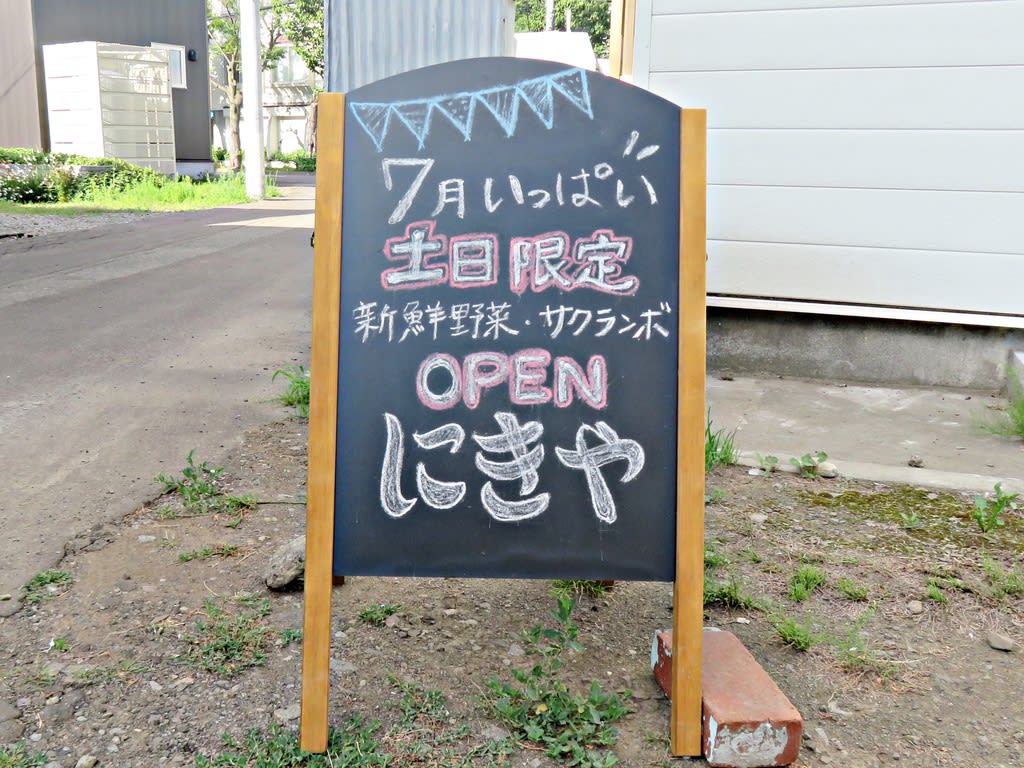 7月いっぱい
土日限定
新鮮野菜・サクランボ
OPEN
にきや